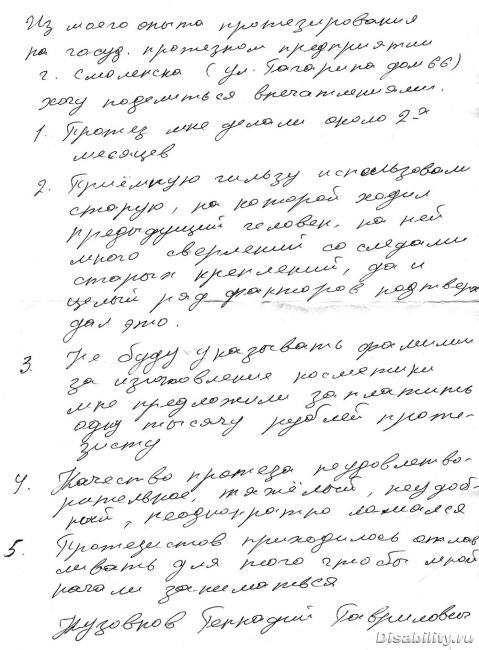 Из моего опыта протезирования
на госуд. протезном предприятии
г. Смоленска (ул. Гагарина дом 66)
хочу поделиться впечатлениями.
1. Протез мне делали около 2-х
месяцев
2. Приёмную гильзу использовали
старую, на которой ходил
предыдущий человек, на ней
много сверлений со следами
старых креплений, да и
целый ряд факторов подтверж
дал это.
3. Не буду указывать фамилии
за изготовление косметики
мне предложили заплатить
одну тысячу рублей проте-
зисту
4. Качество протеза неудовлетво-
рительное, тяжёлый, неудоб-
ный, неоднократно ломался
5. Протезистов приходилось отлав
ливать для того чтобы мной
начали заниматься
Геннадий Гаврилович
Disability.ru